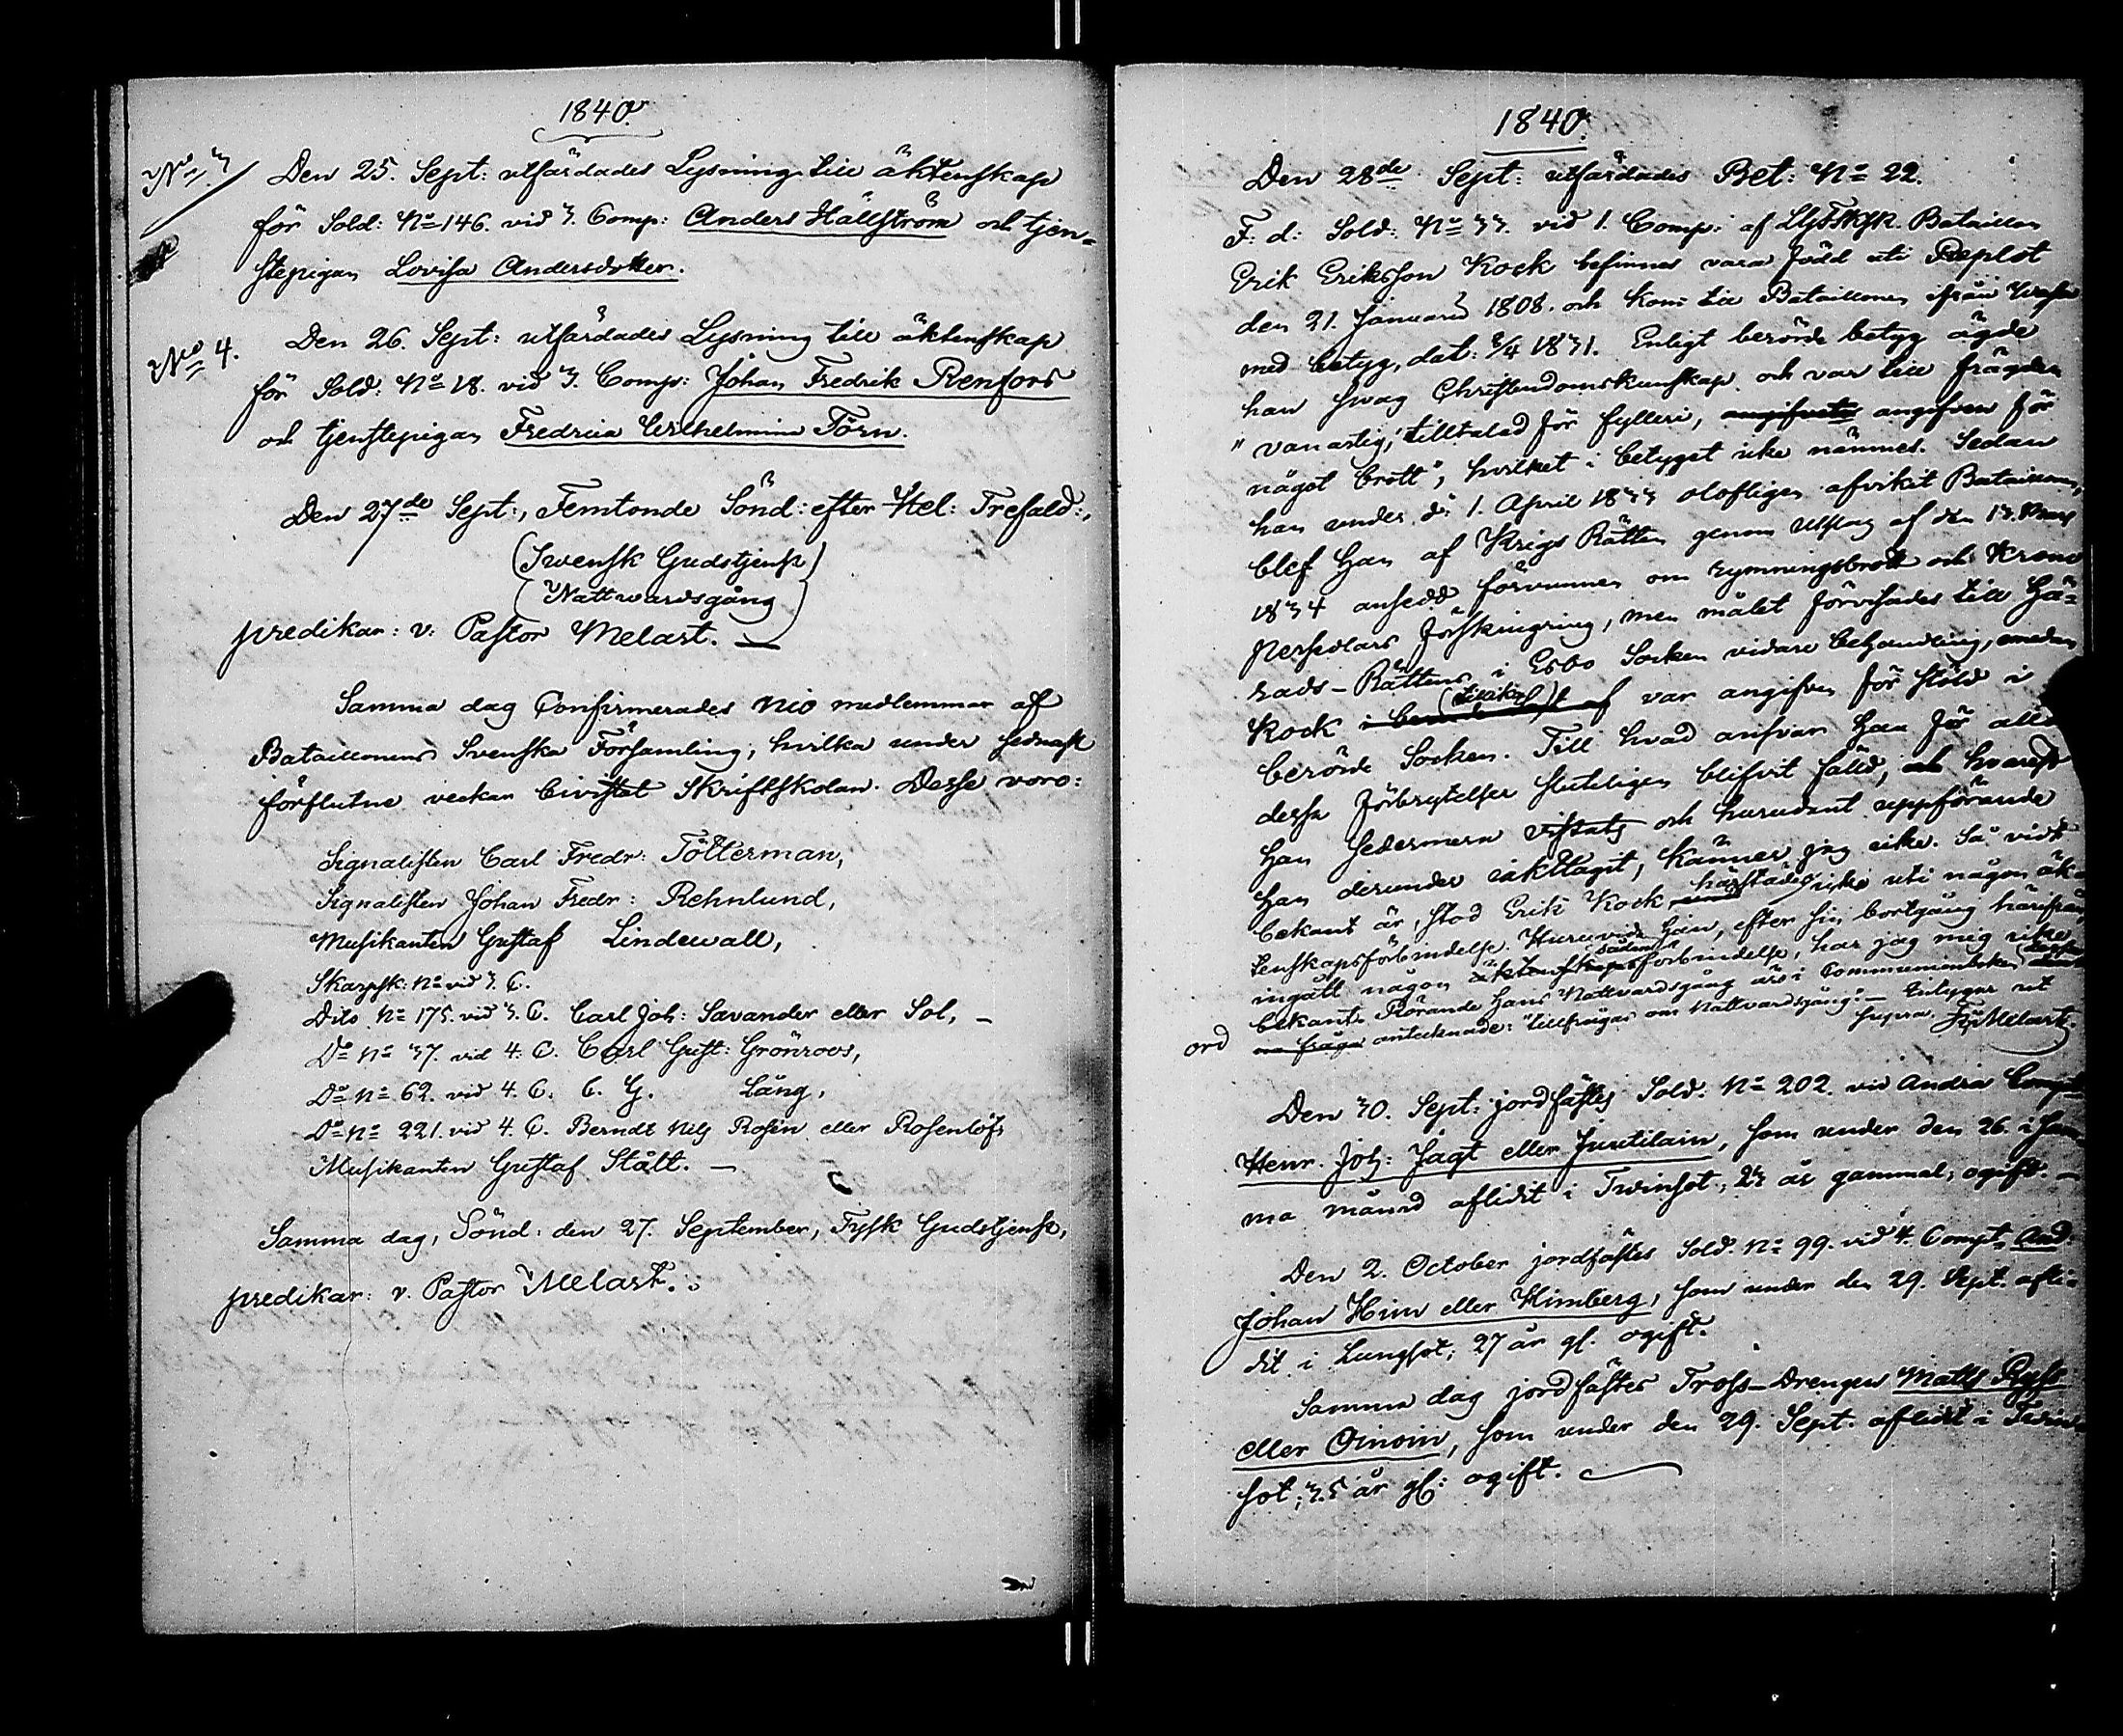 1840.
No 3
Den 25. Sept: utfärdades Lysning till äktenskap
för Sold: No 146. vid 3. Comp: Anders Hällström och tjen-
stepigan Lovisa Andersdotter.
No 4.
Den 26. Sept: utfärdades Lysning till äktenskap
för Sold: No 18. vid 3. Comp: Johan Fredrik Renfors
och tjenstepigan Fredrica Wilhelmina Törn.
Den 27de Sept:, Femtonde Sönd: efter Hel: Trefald:,
(Swensk Gudstjenst)
(Nattwardsgång)
predikar: v: Pastor Melart. —
Samma dag Confirmerades nio medlemmar af
Bataillonens Svenska Församling, hvilka under sednast
förflutne veckan bivistat Skriftskolan. Desse voro:
Signalisten Carl Fredr: Tötterman,
Signalisten Johan Fredr: Rehnlund,
Musikanten Gustaf Lindewall,
Skarpsk: No vid 3. C.
Dito No 175. vid 3. C. Carl Joh: Savander eller Sol, —
Do No 37. vid 4. C. Carl Gust: Grönroos,
Do No 62. vid 4. C. C. G. Lång,
Do No 221. vid 4. C. Berndt Nils Rosin eller Rosenlöf,
Musikanten Gustaf Stålt. —
Samma dag, Sönd: den 27. September, Tysk Gudstjenst,
predikar: v. Pastor Melart.
1840.
Den 28de Sept: utfärdades Bet: No 22.
F: d: Sold: No 33 vid 1. Comp: af Bataillon
Erik Eriksson Kock befinnes vara född uti Replot
den 21. Januarii 1808. och kom till Bataillonen ifrån Wasa
med betyg, dat: 1831. Enligt berörde betyg ägde
han swag Christendomskunskap och var till frägden
"vanartig, tilltalad för fylleri, angifven för
något brott", hvilket i betyget icke nämnes. Sedan
han under d: 1. April 1833 olofligen afvikit Bataillonen,
blef han af Krigs Rätten genom Utslag af den 13. Mars
1834 ansedd förvunnen om rymningsbrott och Krono
Persedlars förskingring, men målet förvisades till Hä-
rads-Rättens i Esbo Socken vidare behandling, emedan
Kock var angifven för stöld i
berörde Socken. Till hvad ansvar han för alla
dessa förbrytelser slutligen blifvit fälld, hvarest
han sedermera vistats och hurudant uppförande
han derunder iakttagit, känner jag icke. Så vidt
bekant är, stod Erik Kock härstädes icke uti någon äk-
tenskapsförbindelse. Huruvida han, efter sin bortgång härifrån
ingått någon sådan förbindelse, har jag mig icke
bekant. Rörande hans Nattvardsgång är i Communionboken
ord antecknade: "tillfrågas om Nattvardsgång". —
supra. Melart.
Den 30. Sept: jordfästes Sold: No 202. vid Andra Comp:
Henr. Joh: Jagt eller Juutilain, som under den 26. i sam-
ma månad aflidit i Twinsot; 23 år gammal, ogift. —
Den 2. October jordfästes Sold: No 99. vid 4. Compt. And:
Johan Him eller Himberg, som under den 29. Sept. afli-
dit i Lungsot; 27 år gl. ogift.
Samma dag jordfästes Tross-Drengen Matts Ryss
eller Oinoin, som under den 29. Sept. aflidit i Twin-
sot; 35 år gl: ogift.